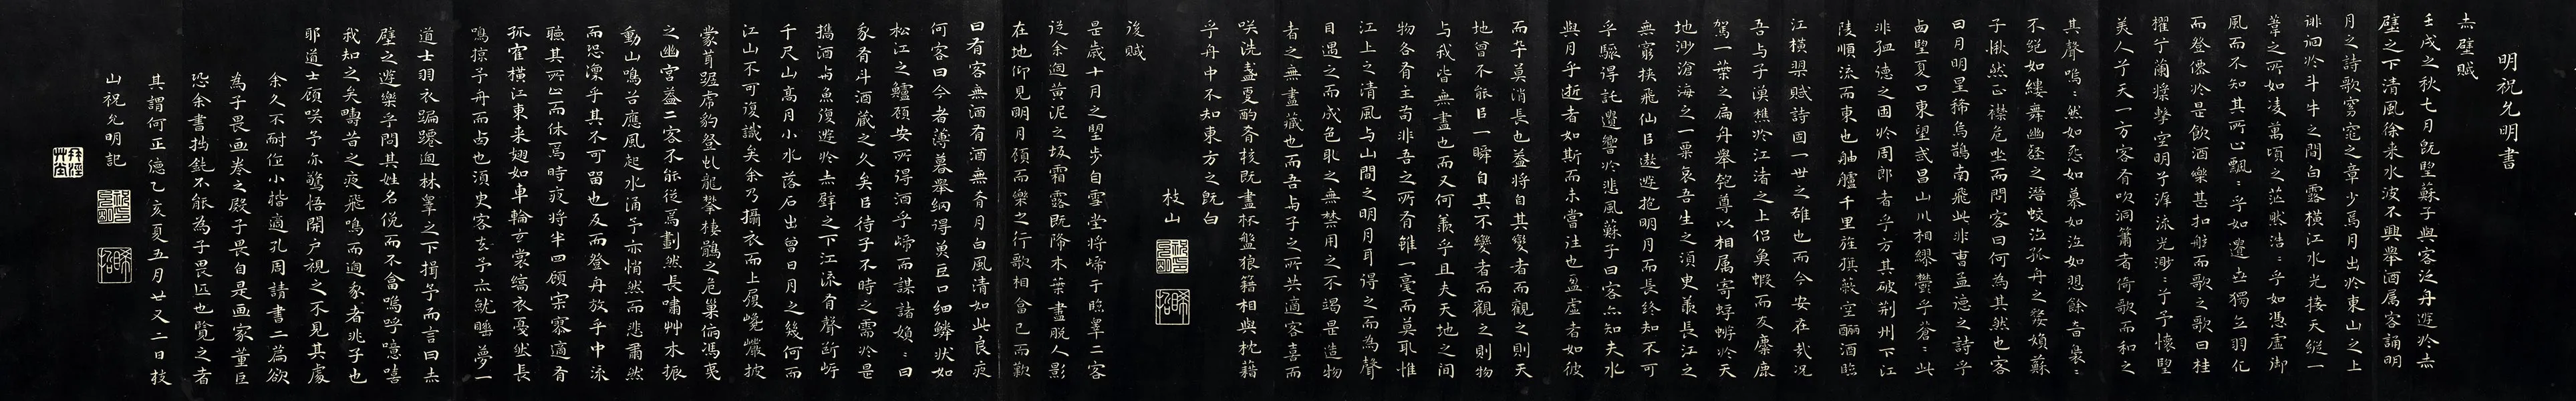 明祝允明書
赤壁賦
壬戌之秋七月既望蘇子與客泛舟遊於赤
壁之下清風徐来水波不興舉酒属客誦明
月之詩歌窈窕之章少焉月出於東山之上
徘徊於斗牛之間白露横江水光接天縱一
葦之所如凌萬頃之茫然浩〻乎如馮虚御
風而不知其所止飄〻乎如遺世獨立羽化
而登僊於是飲酒樂甚扣舷而歌之歌曰桂
櫂兮蘭槳擊空明兮泝流光渺〻兮予懷望
美人兮天一方客有吹洞簫者倚歌而和之
其聲嗚〻然如怨如慕如泣如愬餘音裊〻
不絕如縷舞幽壑之潜蛟泣孤舟之嫠婦蘇
子愀然正襟危坐而問客曰何為其然也客
曰月明星稀烏鵲南飛此非曹孟德之詩乎
西望夏口東望武昌山川相繆鬱乎蒼〻此
非孟德之困於周郎者乎方其破荆州下江
陵順流而東也舳艫千里旌旗蔽空釃酒臨
江横槊賦詩固一世之雄也而今安在哉况
吾与子漁樵於江渚之上侣魚蝦而友麋鹿
駕一葉之扁舟舉匏尊以相属寄蜉蝣於天
地渺滄海之一粟哀吾生之須史羨長江之
無窮挟飛仙以遨遊抱明月而長終知不可
乎驟得託遺響於悲風蘇子曰客亦知夫水
與月乎逝者如斯而未嘗往也盈虚者如彼
而卒莫消長也蓋將自其變者而觀之則天
地曾不能以一瞬自其不變者而觀之則物
与我皆無盡也而又何羨乎且夫天地之间
物各有主苟非吾之所有雖一毫而莫取惟
江上之清風与山間之明月耳得之而為聲
目遇之而成色取之無禁用之不竭是造物
者之無盡藏也而吾与子之所共適客喜而
咲洗盞更酌肴核既盡杯盤狼籍相與枕藉
乎舟中不知東方之既白
枝山
後賦
是歲十月之望步自雪堂將歸于臨皋二客
從余過黄泥之坂霜露既降木葉盡脱人影
在地仰見明月顧而樂之行歌相答已而歎
曰有客無酒有酒無肴月白風清如此良夜
何客曰今者薄暮舉網得魚巨口細鱗狀如
松江之鱸顧安所得酒乎歸而謀諸婦〻曰
我有斗酒藏之久矣以待子不時之需於是
攜酒与魚復遊於赤壁之下江流有聲斷岸
千尺山高月小水落石出曾日月之幾何而
江山不可復識矣余乃攝衣而上履巉巖披
蒙茸踞虎豹登虬龍攀棲鶻之危巢俯馮夷
之幽宫蓋二客不能從焉劃然長嘯艸木振
動山鳴谷應風起水涌予亦悄然而悲肅然
而恐凛乎其不可留也反而登舟放乎中流
聽其所止而休焉時夜将半四顧寂寥適有
孤隺横江東来翅如車輪玄裳縞衣戛然長
鳴掠予舟而西也須史客去予亦就睡夢一
道士羽衣蹁躚過林皋之下揖予而言曰赤
壁之遊樂乎問其姓名俛而不答嗚呼噫嘻
我知之矣疇昔之夜飛鳴而過我者非子也
耶道士顧咲予亦驚悟開户視之不見其處
余久不耐作小楷適孔周請書二篇欲
為子畏画卷之殿子畏自是画家董巨
恐余書拙鈍不能為子畏匹也覽之者
其謂何正德乙亥夏五月廿又二日枝
山祝允明記